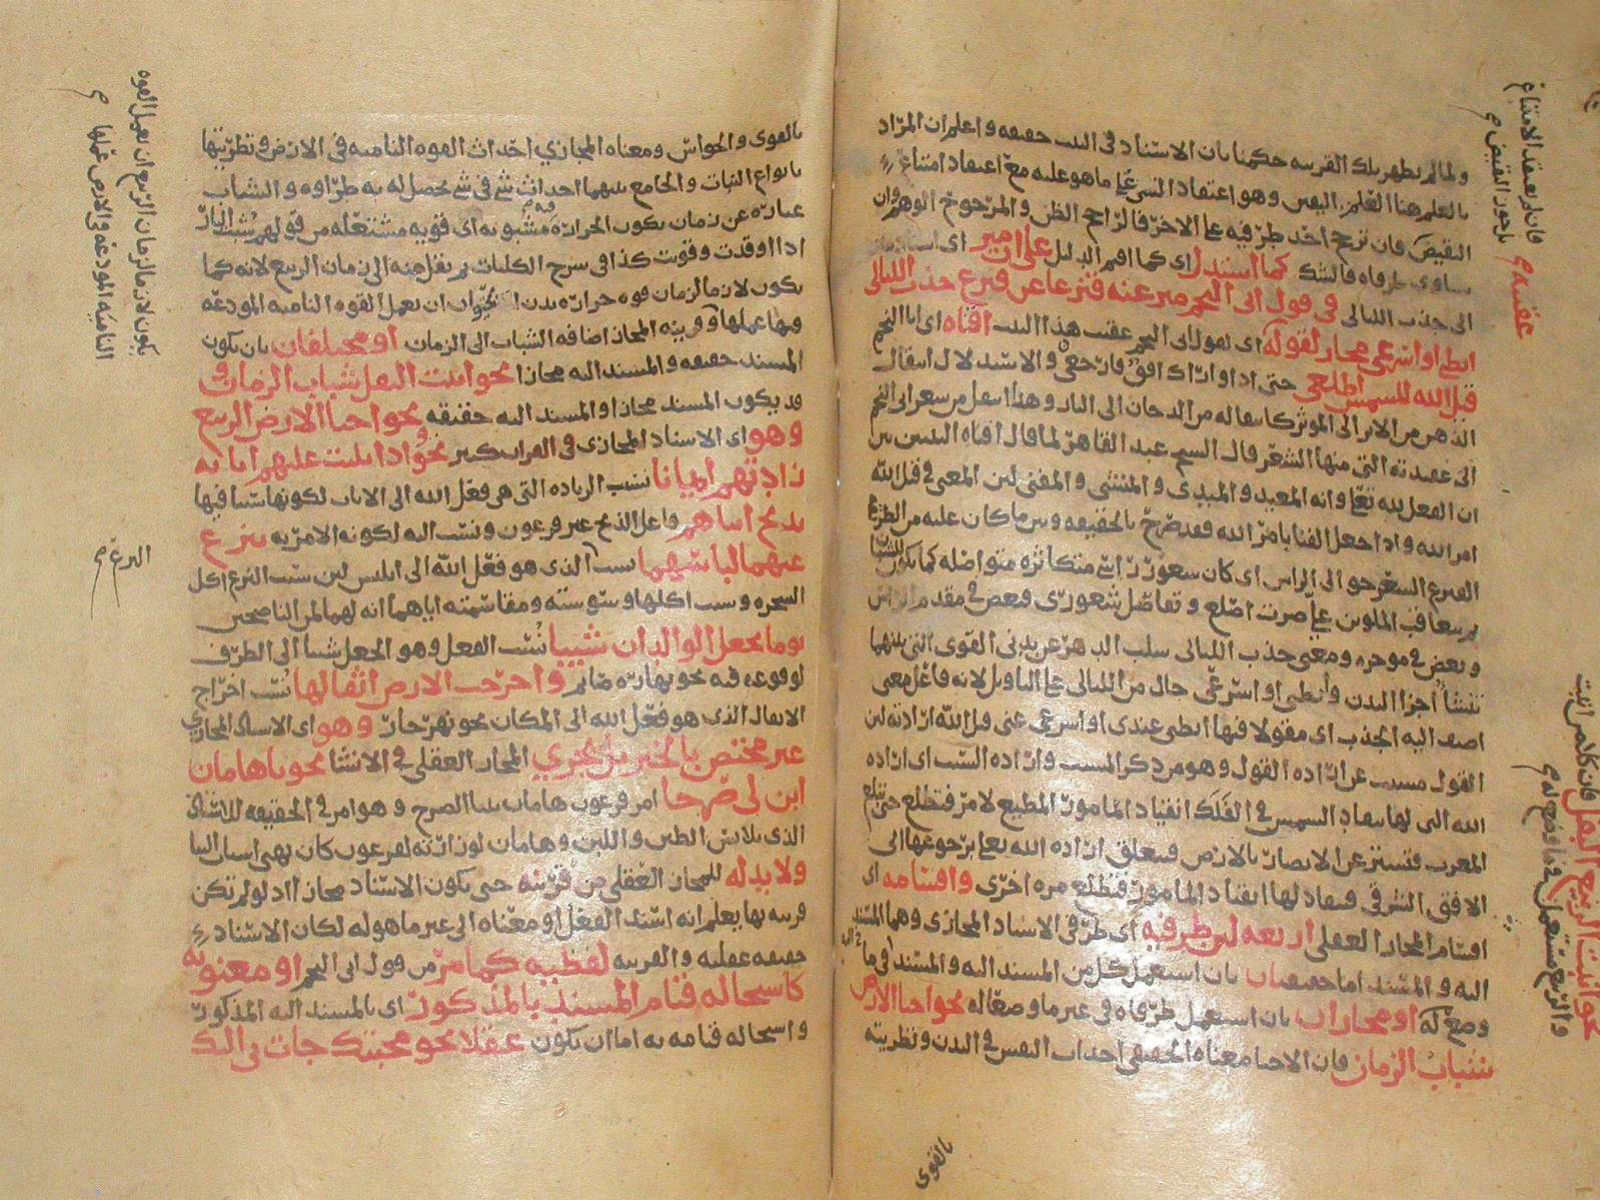 ولما لم يظهر تلك القرينه حكمنا بان الاسناد في البيت حقيقه واعلم ان المراد
بالعلم هنا العلم اليقين وهو اعتقاد الشي على ما هو عليه مع اعتقاد امتناع
النقيض فان ترجح احد طرفيه على الاخر فالراجح الظن والمرجوح الوهم وان
تساوى طرفاه فالشك كما استدل اي كما اقيم الدليل على ان ميز اي اسناد ميز
الى جذب الليالي في قول ابي النجم ميز عنه قنزعا عن قنزع جذب الليالي
ابطي او اسرعي مجاز لقوله اي لقول ابي النجم عقيب هذا البيت افناه اي ابا النجم
قيل الله للشمس اطلعي حتى اذا واراك افق فارجعي والاستدلال انتقال
الذهن من الاثر الى الموثر كانتقاله من الدخان الى النار وهذا انتقل من شعر ابي النجم
الى عقيدته التي منها الشعر قال الشيخ عبد القاهر لما قال افناه البيتين بين
ان الفعل لله تعالى وانه المعيد والمبدي والمنشي والمفني لان المعنى في قيل الله
امر الله واذا جعل الفنا بامر الله فقد صرح بالحقيقه وبين ما كان عليه من الطريقه
القنزع الشعر حوالى الراس اي كان شعور راسي متكاثره متواصله كما يكون للشبان
ثم بتعاقب الملوين علي صرت اصلع وتفاصل شعوري فبعض في مقدم الراس
وبعض في موخره ومعنى جذب الليالي سلب الدهر عن بدني القوى التي بدنها
تنشأ اجزا البدن وأبطي او اسرعي حال من الليالي على التاويل لانه فاعل معنى
اضيف اليه الجذب اي مقولا فيها ابطي عندي او اسرعي عني قيل الله ارادته لان
القول مسبب عن اراده القول وهو من ذكر المسبب واراده السبب اي اراده
الله التي لها ينقاد الشمس في الفلك انقياد المامور المطيع لامر فتطلع حتى تبلغ
المغرب فتستتر عن الابصار بالارض فيتعلق اراده الله تعالى برجوعها الى
الافق الشرقي فينقاد لها انقياد المامور فتطلع مره اخرى واقسامه اي
اقسام المجاز العقلي اربعه لان طرفيه اي طرفي الاسناد المجازي وهما المسند
اليه والمسند اما حقيقتان بان استعمل كل من المسند اليه والمسند في ما
وضع له او مجازان بان استعمل طرفاه في غير ما وضعا له نحو احيا الارض
شباب الزمان فان الاحيا معناه الحقيقي احداث النفس في البدن وتطريته
بالقوى
فان لم يعتقد الامتناع
بل جوز النقيض
عقيب
نحو انبت الربيع البقل فان كلا من انبت
والربيع مستعمل فيما وضع له
بالقوى والحواس ومعناه المجازي احداث القوه الناميه في الارض وتطريتها
بانواع النبات والجامع بينهما احداث شي في شي يحصل له به طراوه والشباب
عباره عن زمان يكون الحراره مشبوبه اي قويه مشتعله من قولهم شبت النار
اذا اوقدت وقويت كذا في شرح الكليات ثم نقل منه الى زمان الربيع لانه كما
يكون لازما لزمان قوه حراره بدن الحيوان ان يعمل القوه الناميه المودعه
فيها عملها وقرينه المجاز اضافه الشباب الى الزمان او مختلفان بان يكون
المسند حقيقه والمسند اليه مجازا نحو انبت البقل شباب الزمان و
قد يكون المسند مجازا والمسند اليه حقيقه نحو احيا الارض الربيع
وهو اي الاسناد المجازي في القران كثير نحو واذا تليت عليهم اياته
زادتهم ايمانا نسب الزياده التي هي فعل الله الى الايات لكونها سببا فيها
يذبح ابناهم فاعل الذبح غير فرعون ونسب اليه لكونه الامر به ينزع
عنهما لباسهما نسب الذي هو فعل الله الى ابليس لان سبب النزع اكل
الشجره وسبب اكلها وسوسته ومقاسمته اياهما انه لهما لمن الناصحين
يوما يجعل الولدان شيبا نسب الفعل وهو الجعل شيبا الى الظرف
لوقوعه فيه نحو نهاره صائم واخرجت الارض اثقالها نسب اخراج
الاثقال الذي هو فعل الله الى المكان نحو نهر جار وهو اي الاسناد المجازي
غير مختص بالخبر بل يجري المجاز العقلي في الانشا نحو يا هامان
ابن لي صرحا امر فرعون هامان ببنا الصرح وهو امر في الحقيقه للاستاذ
الذي يلابس الطين واللبن وهامان لوزارته لفرعون كان يهيي اسباب البنا
ولا بد له للمجاز العقلي من قرينه حتى يكون الاسناد مجازا اذ لو لم تكن
قرينه بها يعلم انه اسند الفعل او معناه الى غير ما هو له لكان الاسناد
حقيقه عقليه والقرينه لفظيه كما مر من قول ابي النجم او معنويه
كاستحاله قيام المسند بالمذكور اي بالمسند اليه المذكور
واستحاله قيامه به اما ان تكون عقلا نحو محبتك جات بي اليك
يكون لازما لزمان الربيع ان يعمل القوه
الناميه المودعه في الارض عملها
النزع